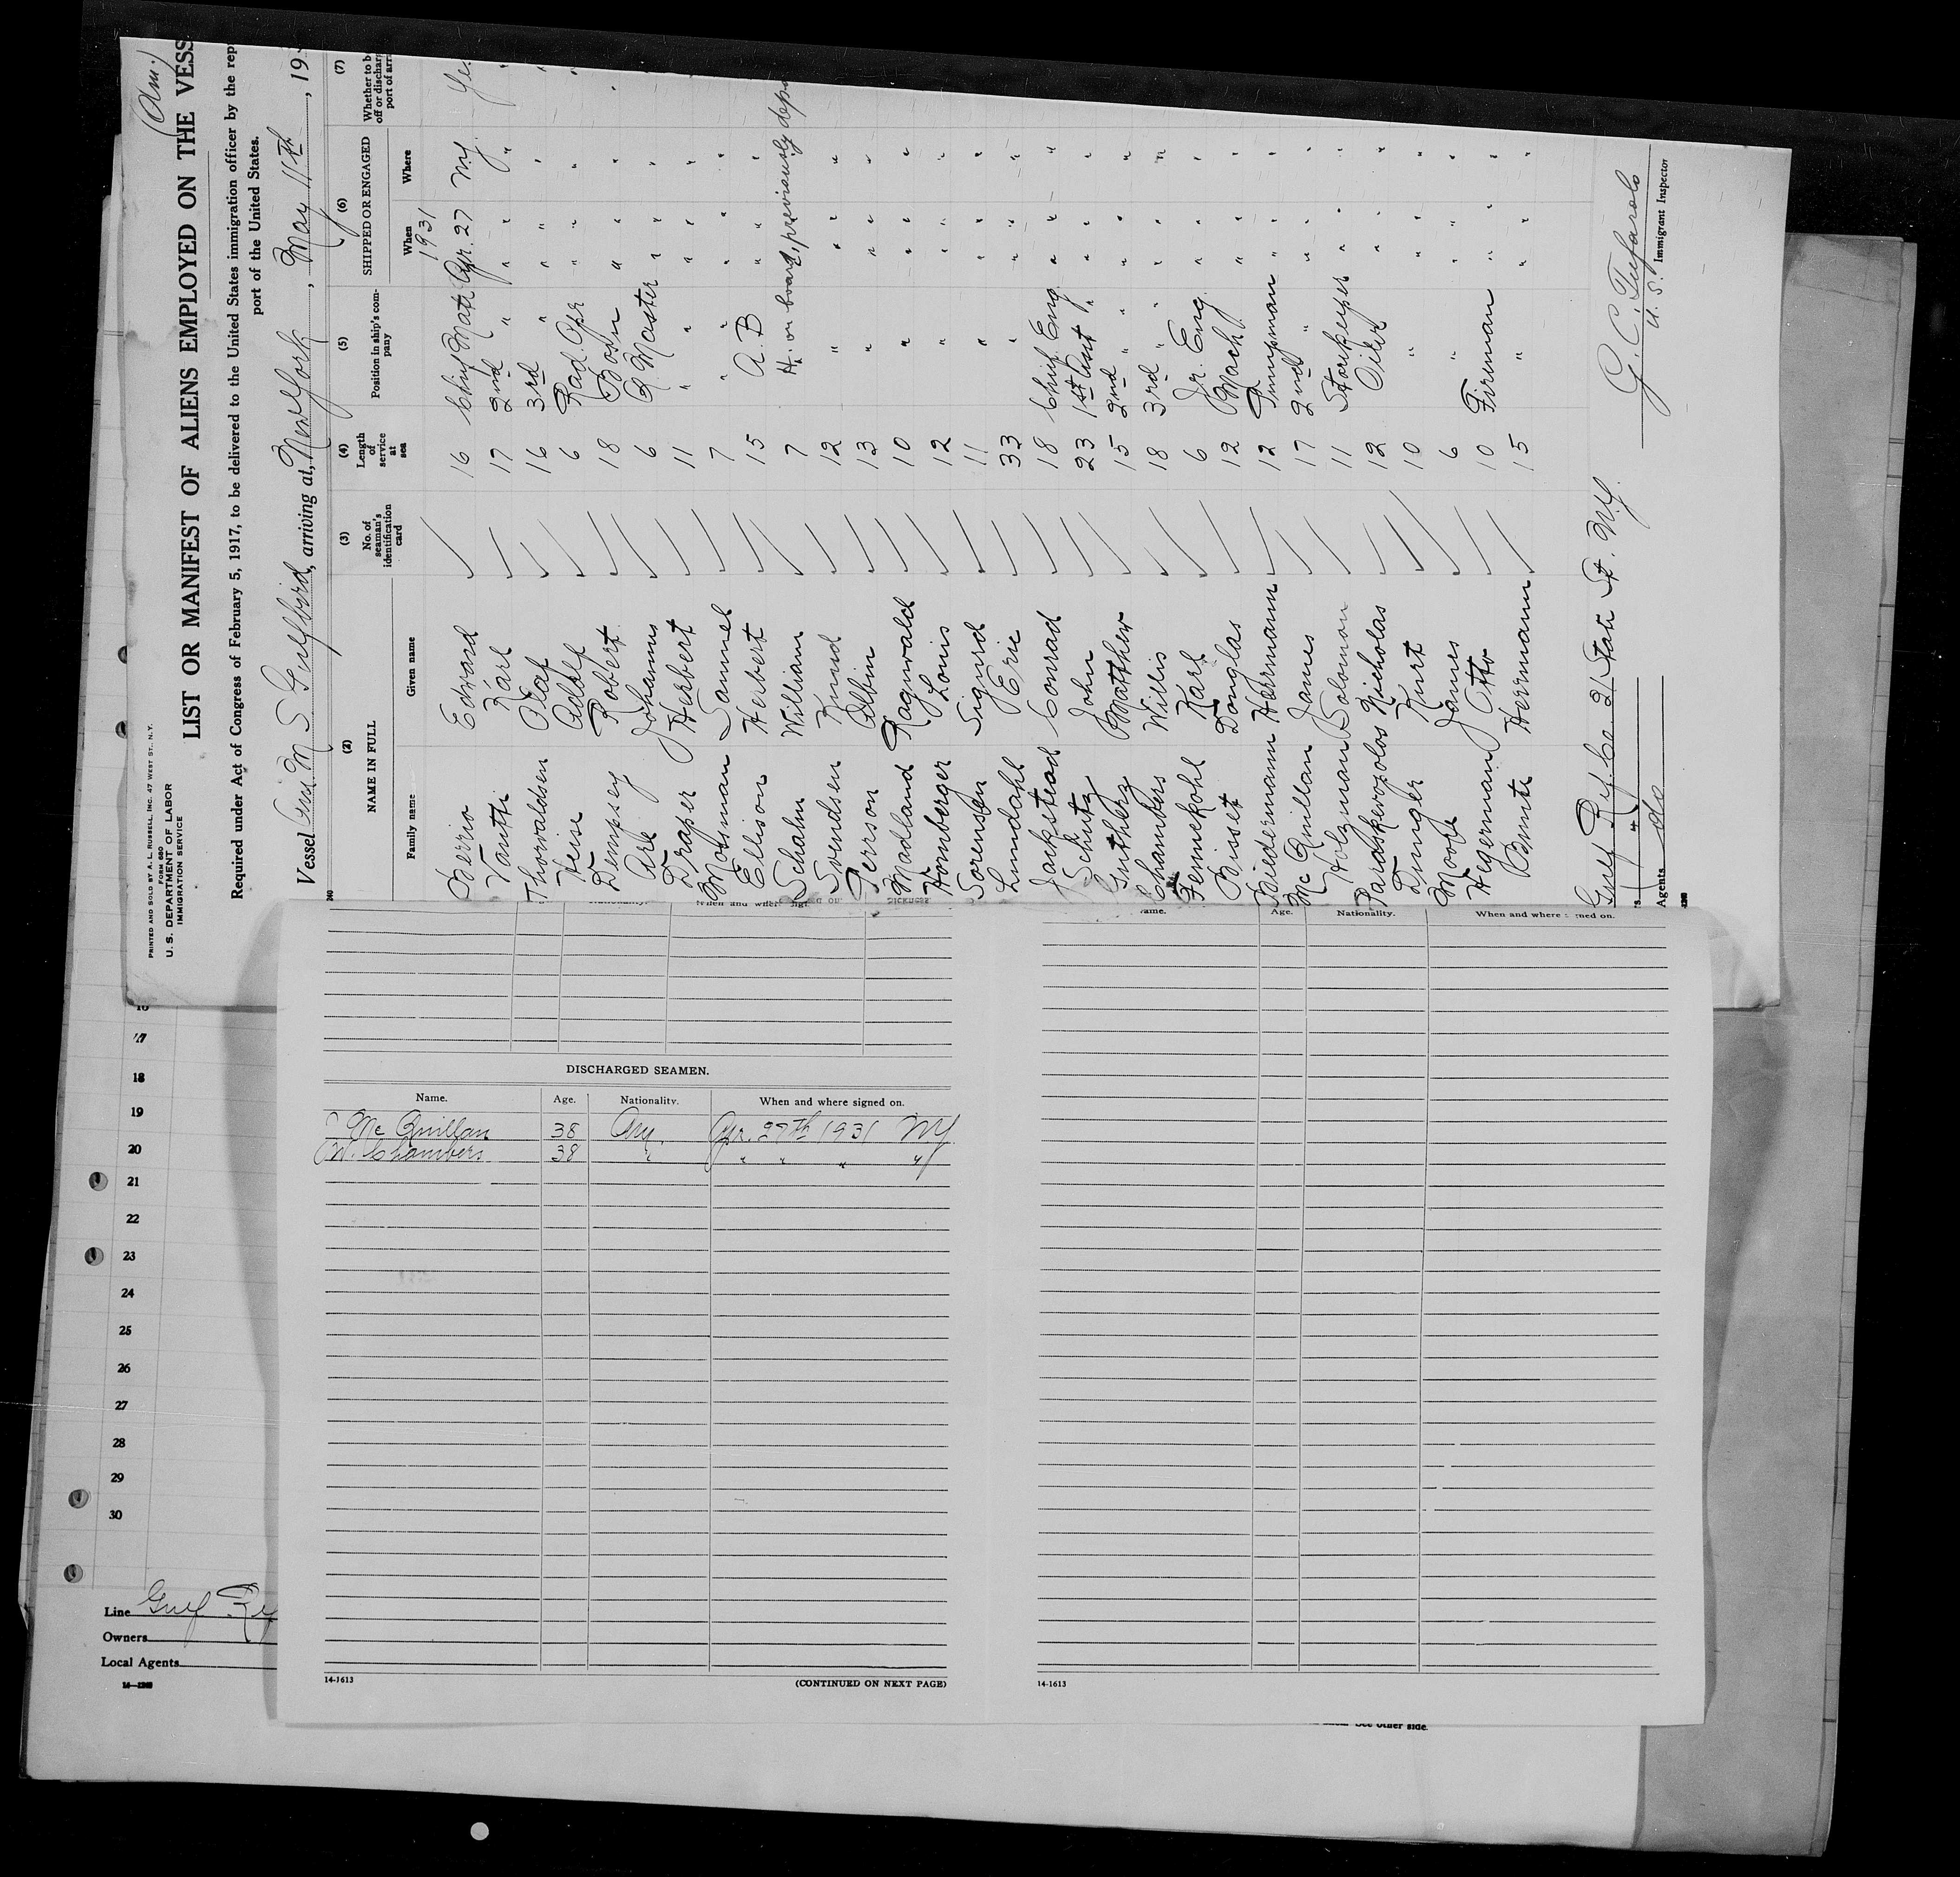 (Am.)
PRINTED AND SOLD BY A. L. RUSSELL, INC. 47 WEST ST., N.Y.
FORM 680
U. S. DEPARTMENT OF LABOR
IMMIGRATION SERVICE
LIST OR MANIFEST OF ALIENS EMPLOYED ON THE VESS
Required under Act of Congress of February 5, 1917, to be delivered to the United States immigration officer by the rep
port of the United States.
Vessel M S Gulfbird, arriving at, New York, May 11th, 19
(2) (3) (4) (5) (6) (7)
NAME IN FULL
Family name Given name
No. of seaman's identification card
Length of service at sea
Position in ship's company
SHIPPED OR ENGAGED
When Where
Whether to b
off or discharg
port of arr
1931
Berrio Edward 16 Chief Mate Apr. 27 N.Y. Yes
Karl 17 2nd " " " "
Thorvaldsen Olaf 16 3rd " " " "
Heise Adolf 6 Rad. Opr " " "
Dempsey Robert 18 Bosn " " "
Ark Johannes 6 Q. Master " " "
Draper Herbert 11 " " " "
Mosman Samuel 7 " " " "
Ellison Herbert 15 A. B " " "
Schahn William 7 H. on board, previously dep
Svendsen Knud 12 " " " "
Person Albin 13 " " " "
Madland Ragnvald 10 " " " "
Homberger Louis 12 " " " "
Sorensen Sigurd 11 " " " "
Lundahl Eric 33 " " " "
Jackstead Conrad 18 Chief Eng " " "
Schutz John 23 1st Asst " " " "
Guthberg Matthew 15 2nd " " " "
Chambers Willis 18 3rd " " " "
Fennekohl Karl 6 Jr. Eng. " " "
Bisset Douglas 12 Mach " " "
Biedermann Herrmann 12 Pumpman " " "
Mc Quillan James 17 2nd " " " "
Holzman Solomon 11 Storekeeper " " "
Paraskevopolos Nicholas 12 Oiler " " "
Dunger Kurt 10 " " " "
Moore James 6 " " " "
Hegerman Otto 10 Fireman " " "
Herrmann 15 " " " "
Gulf Ref. Co. 21 State St. N.Y.
s "
Agents do
G. C. Tufarolo
U. S. Immigrant Inspector
When and where
Name. Age. Nationality. When and where signed on.
DISCHARGED SEAMEN.
Name. Age. Nationality. When and where signed on.
Mc Quillan 38 Am. Apr. 27th 1931 NY
W. Chambers 38 " " " " "
14-1613
(CONTINUED ON NEXT PAGE)
14-1613
16
17
18
19
20
21
22
23
24
25
26
27
28
29
30
Line Gulf Ref
Owners
Local Agents
See other side.